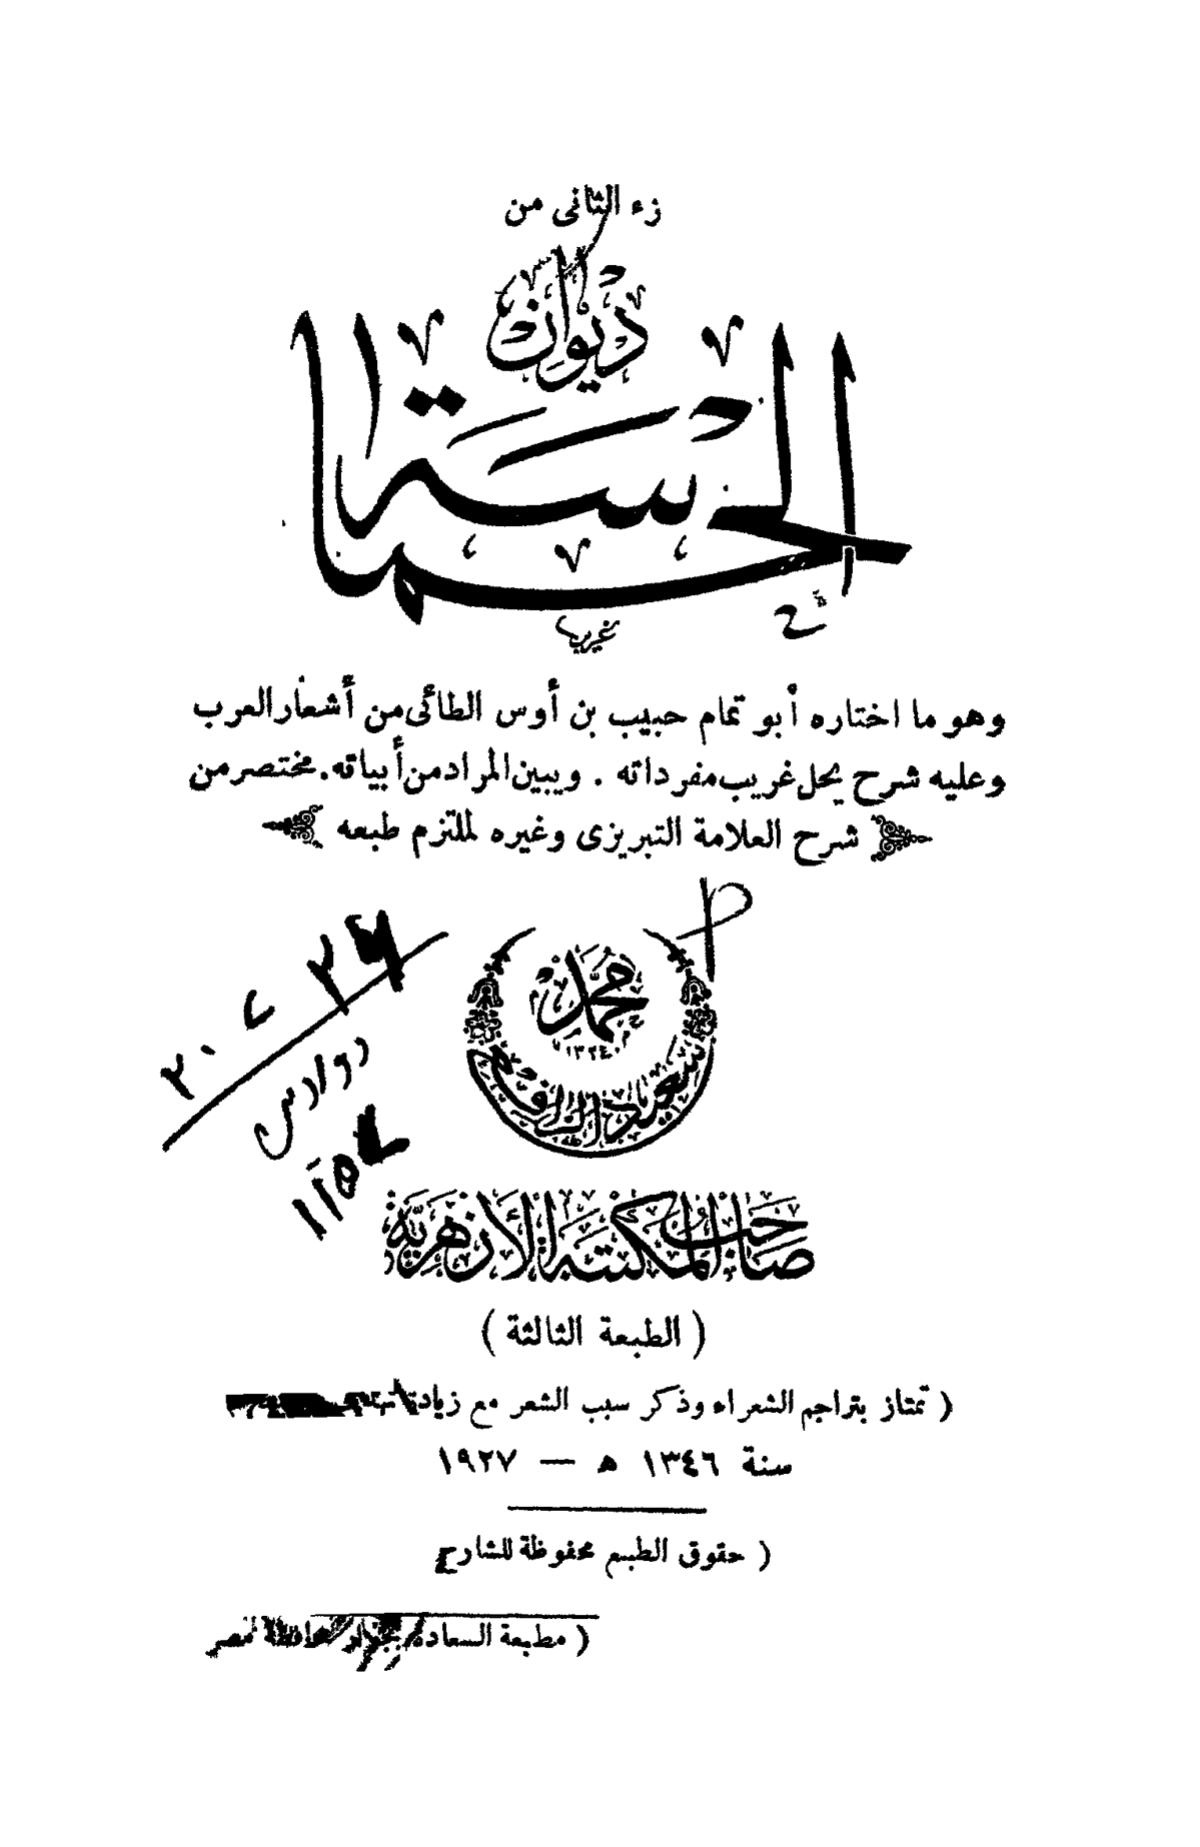 زء الثانى من
ديوان
الحماسة
غريب
وهو ما اختاره أبو تمام حبيب بن أوس الطائى من أشعار العرب
وعليه شرح يحل غريب مفرداته . ويبين المراد من أبياته . مختصر من
شرح العلامة التبريزى وغيره لملتزم طبعه
محمد
١٣٢٤
سعيد الرافعى
صاحب المكتبة الأزهرية
( الطبعة الثالثة )
( تمتاز بتراجم الشعراء وذكر سبب الشعر مع زيادة
سنة ١٣٤٦ هـ — ١٩٢٧
( حقوق الطبع محفوظة للشارح
( مطبعة السعادة بجوار محافظة مصر